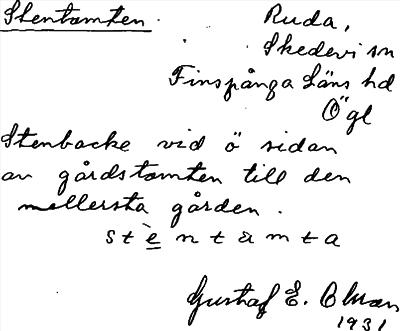 Stentomten. Ruda,
Skedevi sn
Finspånga Läns hd
Ögl
Stenbacke vid ö sidan
av gårdstomten till den
mellersta gården.
s t è n t å m t a
Gustaf E. Olman
1931